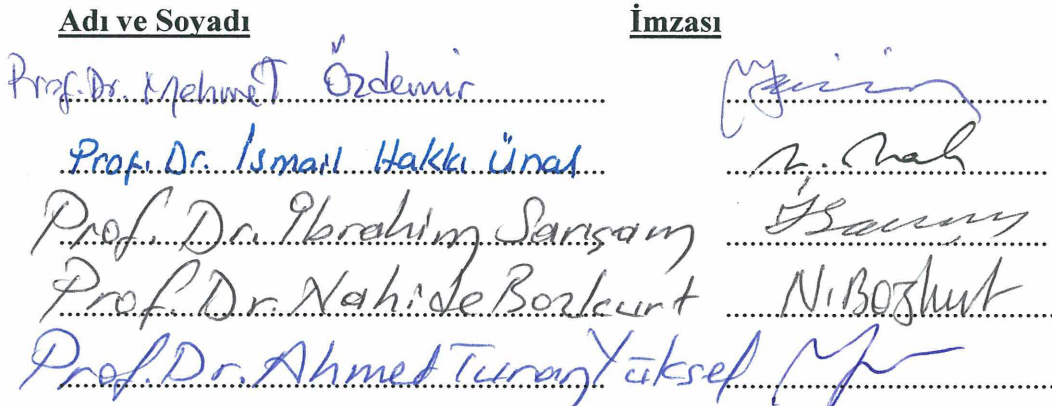 Adı ve Soyadı İmzası
Prof. Dr. Mehmet Özdemir
Prof. Dr. İsmail Hakkı Ünal
Prof. Dr. İbrahim Sarıçam
Prof. Dr. Nahide Bozkurt N. Bozkurt
Prof. Dr. Ahmet Turan Yüksel